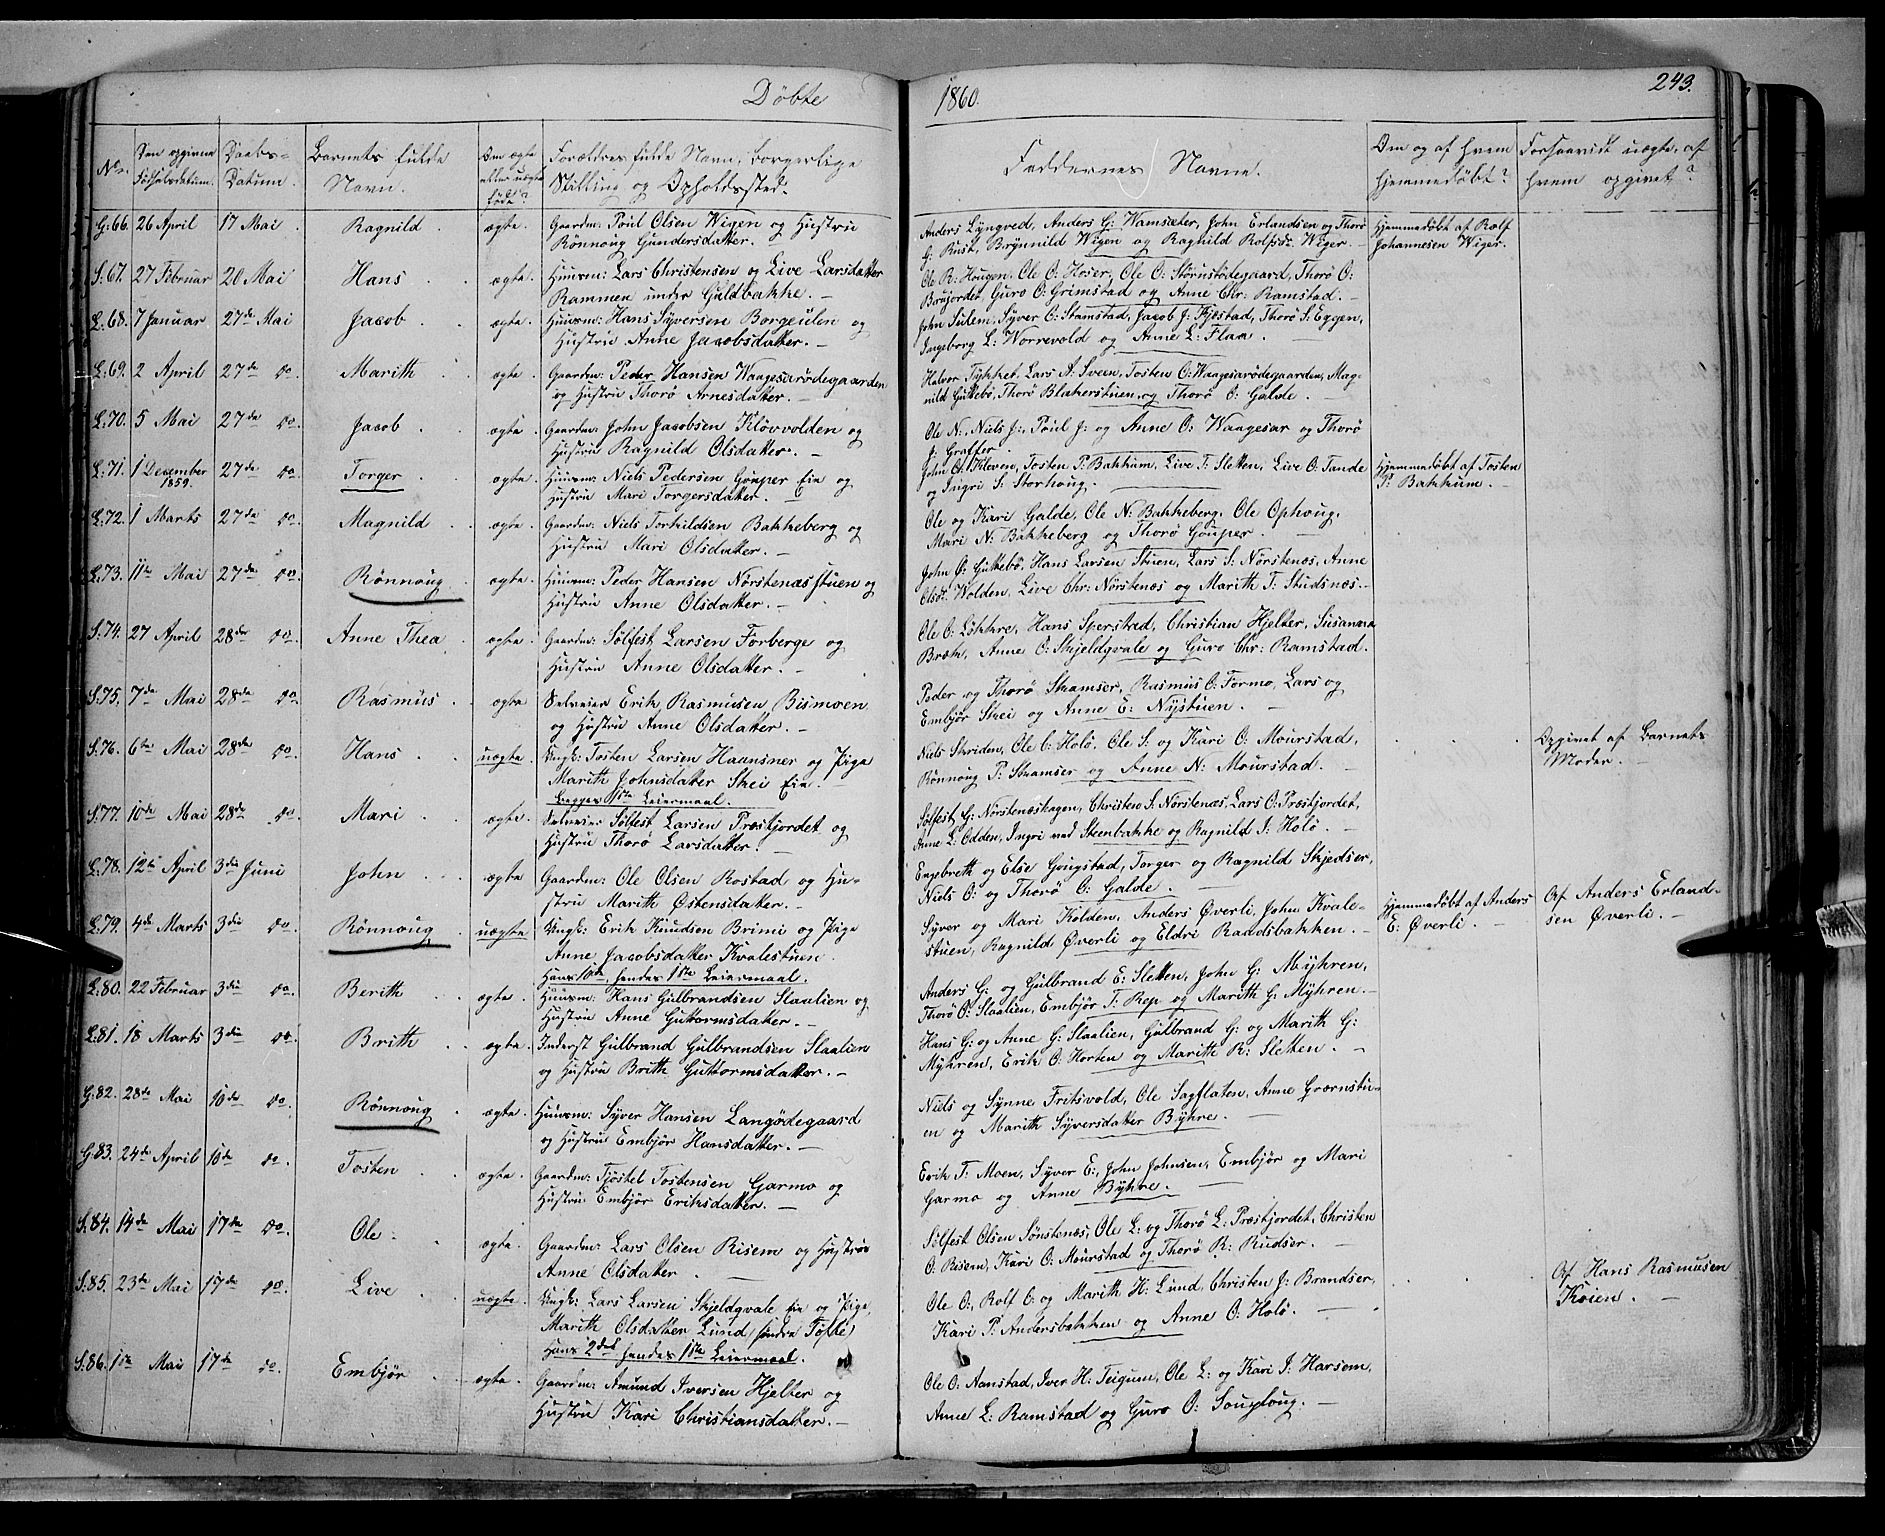 Döbte
1860.
243.
No.
Den opgivne Fødselsdatum.
Daabs-Datum.
Barnets fulde Navn.
Om ægte eller uægte født?
Forældres fulde Navn, borgerlige Stilling og Opholdssted.
Faddernes Navne.
Om og af hvem hjemmedøbt?
Forsaavidt uægte, af hvem opgivet?
G. 66. 26 April 17 Mai Ragnild ægte. Gaardm: Poul Olsen Wigen og Hustrü
Rönnoug Gundersdatter.
Anders Lyngved, Anders G: Wamsæter, John Erlandsen og Thorö
G: Rust, Brynnild Wigen og Ragnild Rolfsdt. Wigen.
Hjemmedöbt af Rolf
Johannesen Wigen.
S. 67. 27 Februar 20 Mai Hans ægte. Huusm: Lars Christensen og Live Larsdatter
Rammen under Guldbakke.
Ole R: Hougen, Ole O: Hoser, Ole O: Störustödegaard, Thorö O:
Brujordet, Guro O: Grimstad og Anne Chr: Ramstad.
L. 68. 7 Januar 27de Mai Jacob ægte. Huusm: Hans Syversen Borgeulen og
Hustrü Anne Jacobsdatter.
John Sulem, Syver O: Stamstad, Jacob J: Fjæstad, Thorö S: Eggen,
Ingeborg L: Worrevold og Anne L: Flaa.
L. 69. 2 April 27de do Marith ægte. Gaardm: Peder Hansen Waagesarödegaarden
og Hustrü Thorö Arnesdatter.
Halvor Tykket, Lars A: Sveen, Tosten O: Waagesarödegaarden, Mag-
nild Guttebö, Thorö Blakerstuen, og Thorö O: Galde.
L. 70. 5 Mai 27de do. Jacob ægte. Gaardm: John Jacobsen Klövvolden og
Hustrü Ragnild Olsdatter.
Ole N:, Niels J:, Poul J: og Anne O: Waagesar og Thorö
J: Graffer.
L. 71. 1 December 1859. 27de do. Torger ægte. Huusm: Niels Pedersen Gouper Eie og
Hustrü Mari Torgersdatter.
John O: Kleven, Tosten P: Bakkum, Live T: Sletten, Live O: Tande
og Ingri S: Storhoug.
Hjemmedöbt af Tosten
P: Bakkum.
L. 72. 1 Marts 27de do. Magnild ægte. Gaardm: Niels Torkildsen Bakkeberg og
Hustrü Mari Olsdatter.
Ole og Kari Galde, Ole N: Bakkeberg, Ole Ophoug,
Mari N: Bakkeberg og Thorö Gouper.
L. 73. 11te Mai 27de do Rönnoug ægte. Huusm: Peder Hansen Nörstenæsstuen og
Hustrü Anne Olsdatter.
John O: Guttebö, Hans Larsen Stuen, Lars S: Nörstenæs, Anne
Olsdt. Wolden, Live Chr: Nörstenæs og Marith T: Studsnæs.
S. 74. 27 April 28de do. Anne Thea ægte. Gaardm: Solfest Larsen Forberge og
Hustrü Anne Olsdatter.
Ole O: Lökkre, Hans Sperstad, Christian Hjelter, Susanna
Bræk, Anne O: Skjeldqvale og Guro Chr: Ramstad.
S. 75. 7de Mai 28de do. Rasmüs ægte Selveier Erik Rasmusen Bismoen
og Hustrü Anne Olsdatter.
Peder og Thorö Stramser, Rasmus O: Formo, Lars og
Embjör Skei og Anne E: Nystuen.
S. 76. 6te Mai 28de do. Hans uægte. Ungk: Tosten Larsen Haansner og Pige
Marith Johnsdatter Skei Eie.
Begges 1ste Leiermaal.
Niels Skriden, Ole C: Holö, Ole S: og Kari O: Mourstad,
Rönnoug P: Stramser og Anne N: Mourstad.
Opgivet af Barnets
Moder.
S. 77. 10de Mai 28de do. Mari ægte. Selveier Solfest Larsen Præstjordet og
Hustrü Thorö Larsdatter.
Solfest G: Nörstenæshagen, Christen S: Nörstenæs, Lars O: Præstjordet,
Anne L: Odden, Ingri ved Steenbakke og Ragnild J: Holö.
L. 78. 12te April 3die Juni John ægte Gaardm: Ole Olsen Rostad og Hu-
strü Marith Østensdatter.
Engebreth og Else Gougstad, Torger og Ragnild Skjedser,
Niels O: og Thorö O: Galde.
L. 79. 4de Marts 3die do. Rönnoug uægte Ungk: Erik Knudsen Brimi og Pige
Anne Jacobsdatter Kvalestuen.
Hans 10de hendes 1ste Leiermaal.
Syver og Mari Kolden, Anders Øverli, John Kvale-
stuen, Ragnild Øverli og Eldri Raadsbakken.
Hjemmedöbt af Anders
E: Øverli.
Af Anders Erland-
sen Øverli.
L. 80. 22 Februar 3die do. Berith ægte. Huusm: Hans Gulbrandsen Slaalien og
Hustrü Anne Guttormsdatter.
Anders G: og Gulbrand E: Sletten, John G: Myhren,
Thorö O: Slaalien, Embjör T: Rep og Marith G: Myhren.
L. 81. 18 Marts 3die do. Brith ægte. Inderst Gulbrand Gulbrandsen Slaalien
og Hustrü Brith Guttormsdatter.
Hans G: og Anne G: Slaalien, Gulbrand G: og Marith G:
Myhren, Erik O: Horten og Marith R: Sletten.
G. 82. 28de Mai 10de do. Rönnoug ægte. Huusm: Syver Hansen Langödegaard
og Hustrü Embjör Hansdatter.
Niels og Synne Fritsvold, Ole Sagflaten, Anne Grærnstu-
en og Marith Syversdatter Byhre.
G. 83. 24de April 10de do. Tosten ægte. Gaardm: Tjöstel Tostensen Garmo og
Hustrü Embjör Eriksdatter.
Erik T: Moen, Syver E:, John Johnsen, Embjör og Mari
Garmo og Anne Byhre.
S. 84. 14de Mai 17de do. Ole ægte. Gaardm: Lars Olsen Risem og Hustrü
Anne Olsdatter.
Solfest Olsen Sönstenæs, Ole L: og Thorö L: Præstjordet, Christen
O: Risem, Kari O: Mourstad og Thorö R: Rudser.
S. 85. 23de Mai 17de do. Live uægte. Ungk: Lars Larsen Skjeldqvale Eie og Pige
Marith Olsdatter Lund (søndre Tofte)
Hans 2det hendes 1ste Leiermaal.
Ole O:, Rolf O: og Marith H: Lund, Christen J: Brandser,
Kari P: Andersbakken og Anne O: Holö.
Af Hans Rasmusen
Koien.
S. 86. 1ste Mai 17de do. Embjör ægte. Gaardm: Amund Iversen Hjelter og
Hustrü Kari Christiansdatter.
Ole O: Aanstad, Iver H: Teigum, Ole L: og Kari I: Harsem,
Anne L: Ramstad og Guro O: Sougloug.